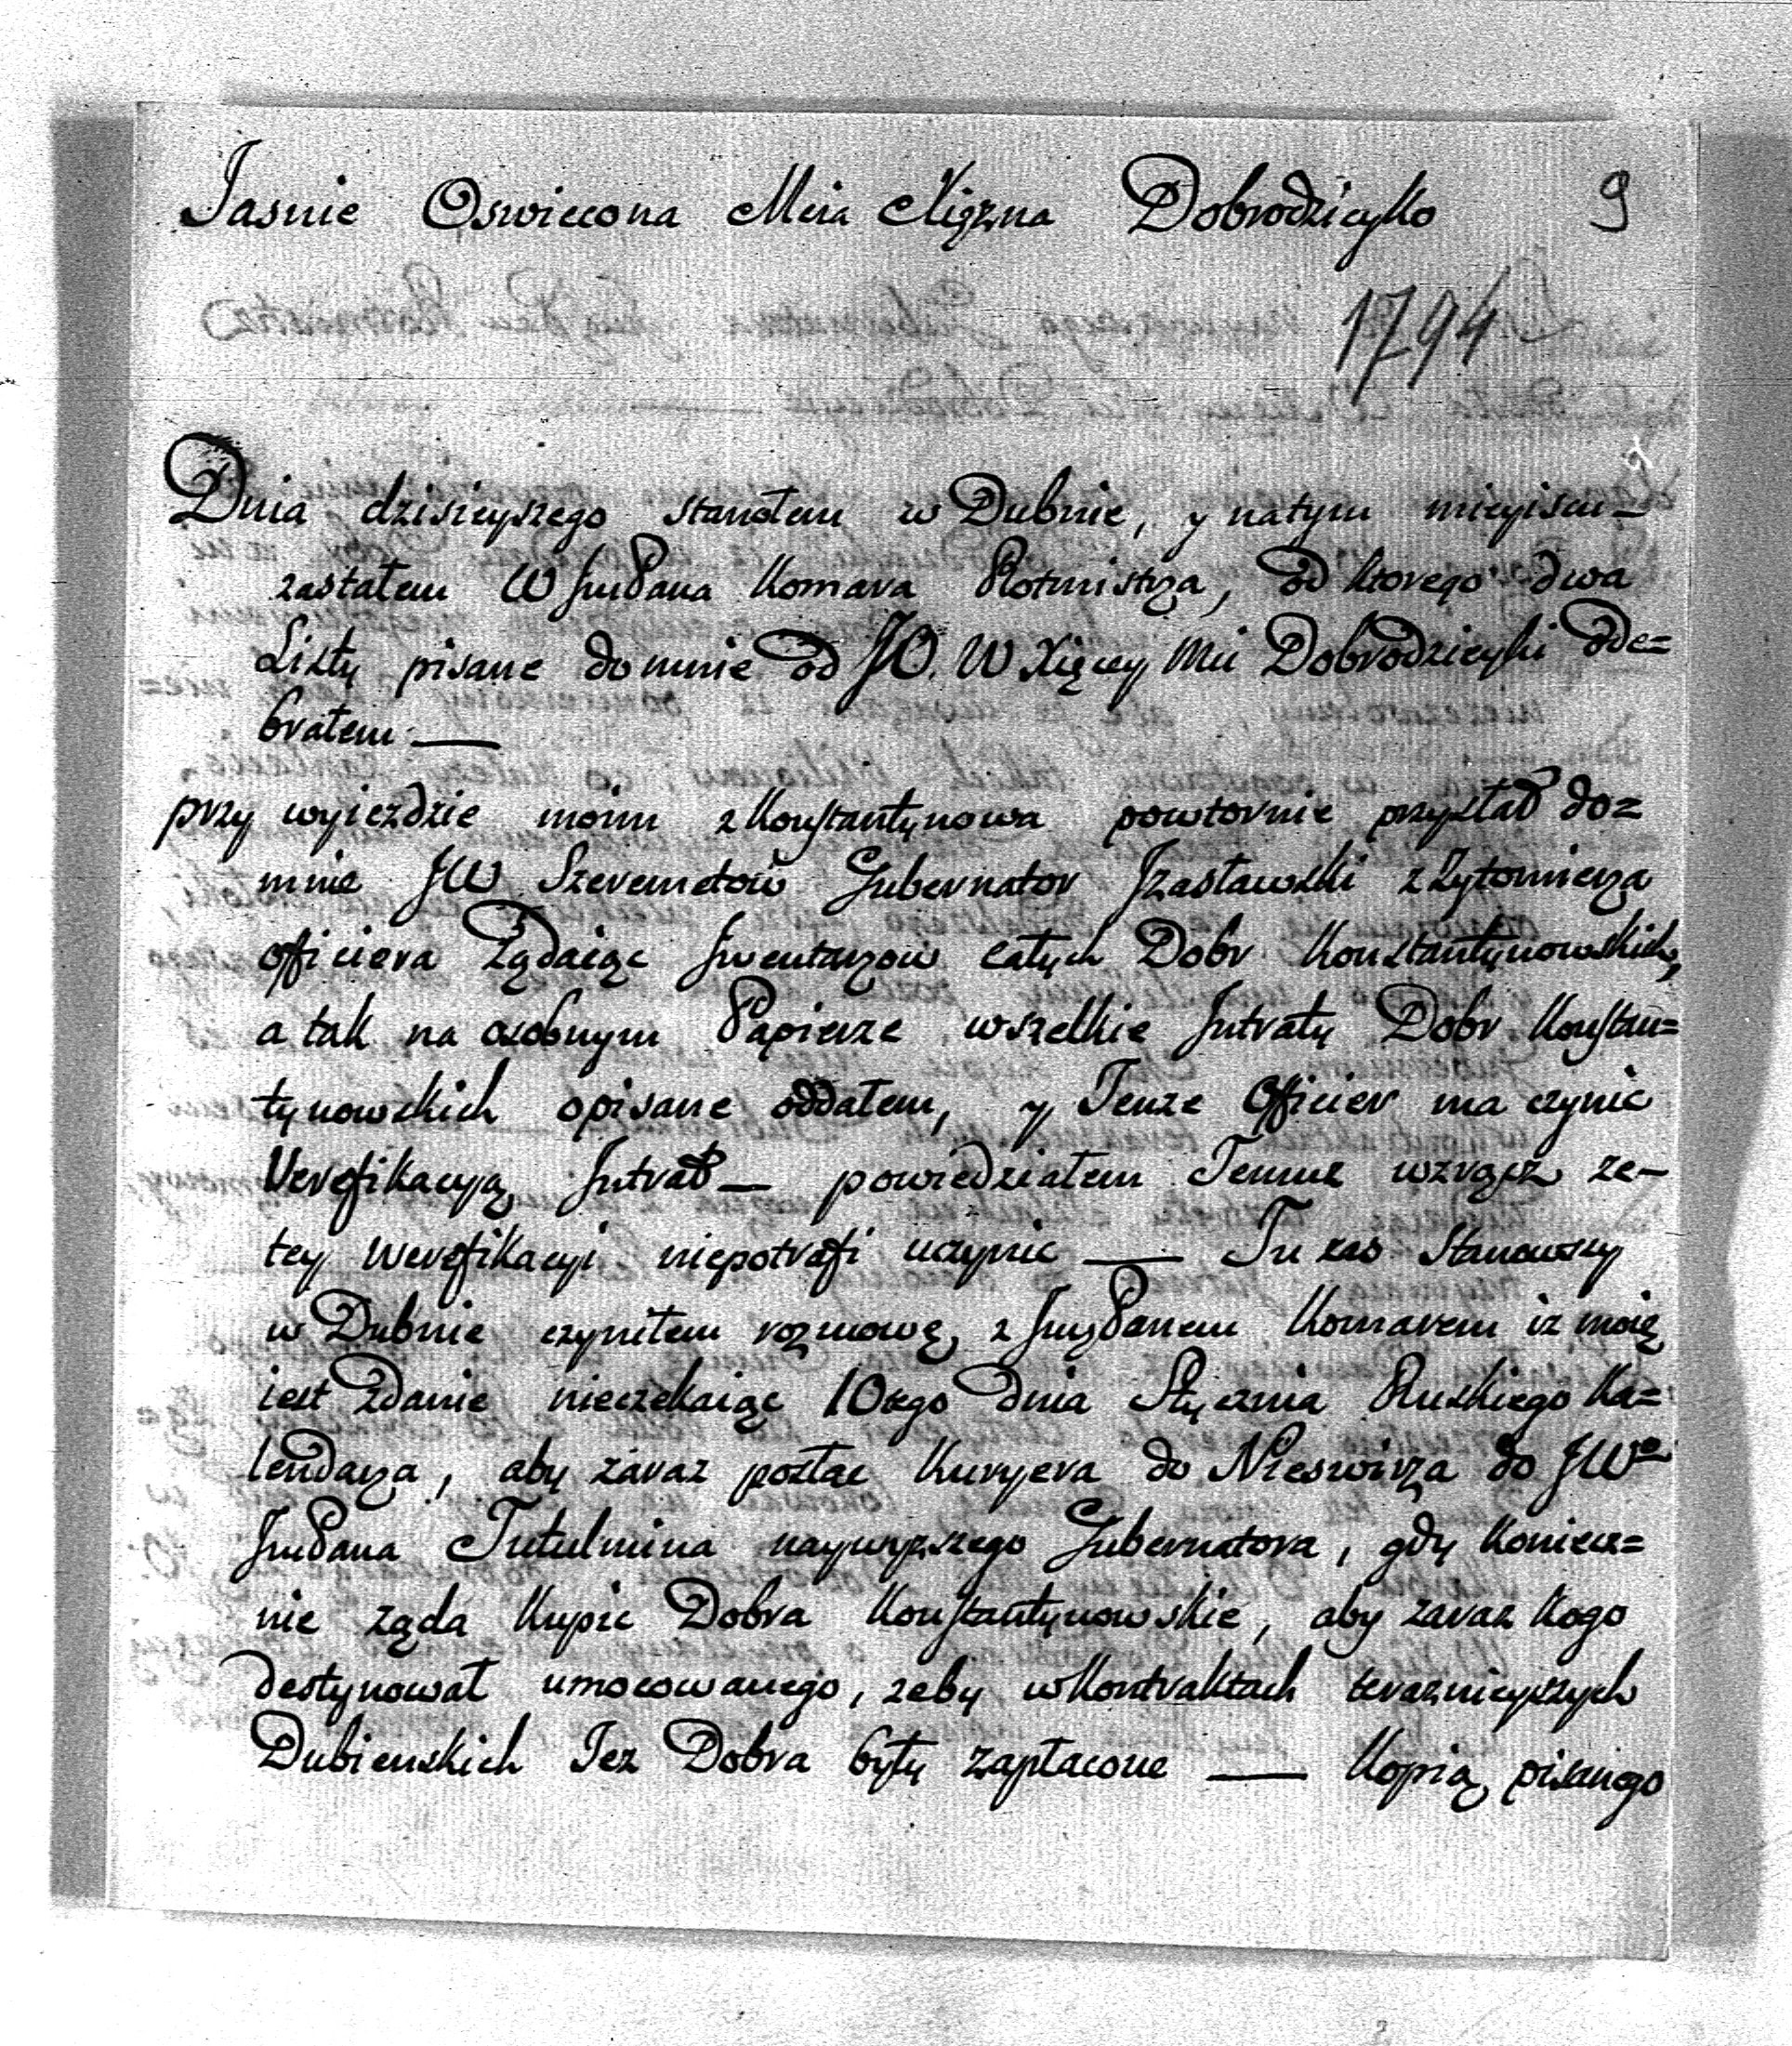 Jasnie Oswiecona Mcia Xięzna Dobrodzieyko 9
1794
Dnia dzisieyszego stanołem w Dubnie, y natym mieyscu–
zastałem W JmPana Komara Rotmistrza, od ktorego dwa
Listy pisane do mnie od JO. W Xięcey Mci Dobrodzieyki ode=
brałem —
przy wyiezdzie moim z Konstantynowa powtornie przysłał do=
mnie JW Szeremetow Gubernator Jzasławski z Zytomierza
officiera Ządaiąc Jnwentarzow całych Dobr Konstantynowskich,
a tak na osobnym Papierze wszelkie Jntraty Dobr Konstan=
tynowskich opisane oddałem, y Tenze Officier ma czynic
Verefikacyją Jntrat — powiedziałem Temuz wzrącz ze–
tey werefikacyi niepotrafi uczynic — Tu zas Stanowszy
w Dubnie czyniłem rozmowę z Jmć Panem Komarem iz moie
iest Zdanie nieczekaiąc 10ego Dnia Stycznia Ruskiego Ka=
lendarza, aby zaraz posłac Kuryera do Nieswirza do JWo
JmPana Tutulmina naywyzszego Gubernatora, gdy koniecz=
nie ząda Kupic Dobra Konstantynowskie, aby zaraz kogo
destynował umocowanego, zeby w Kontraktach terazniejszych
Dubienskich Tez Dobra były zapłacone — Kopią pisanego